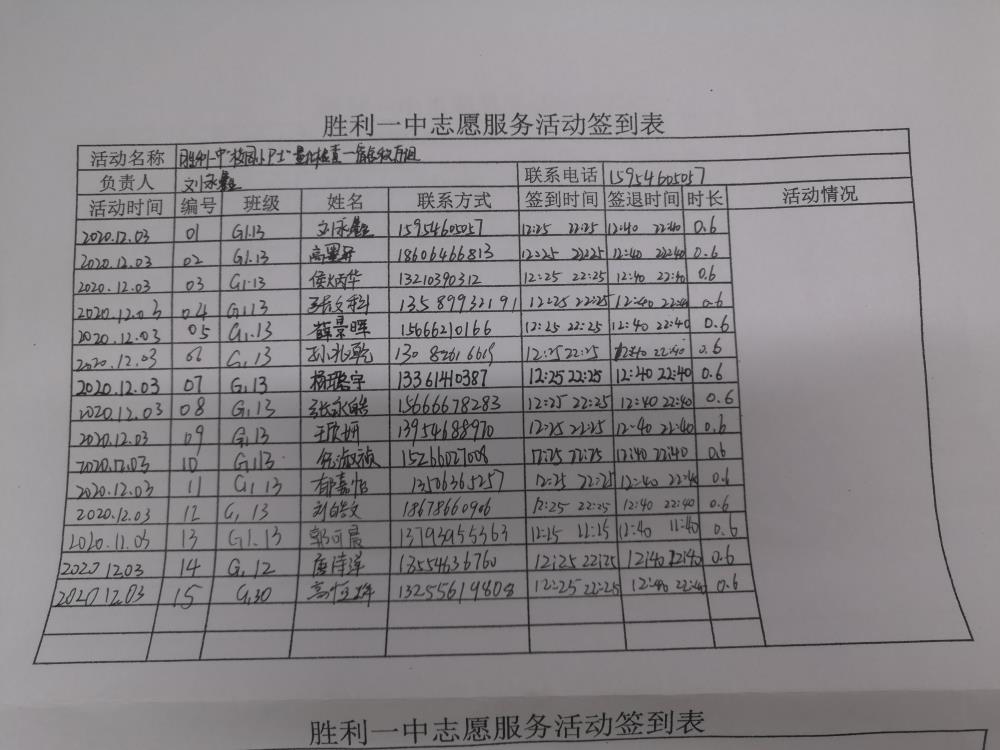 胜利一中志愿服务活动签到表
活动名称 胜利一中"校园小卫士"量化检查一
负责人 刘永 联系电话 15954605057
活动时间 编号 班级 姓名 联系方式 签到时间 签退时间 时长 活动情况
2020.12.03 01 G1.13 刘永 15954605057 12:25 22:25 12:40 22:40 0.6
2020.12.03 02 G1.13 高 18606466813 12:25 22:25 12:40 22:40 0.6
2020.12.03 03 G1.13 侯炳华 13210390312 12:25 22:25 12:40 22:40 0.6
2020.12.03 04 G1.13 张文科 13589932191 12:25 22:25 12:40 22:40 0.6
2020.12.03 05 G1.13 薛景晖 15666210166 12:25 22:25 12:40 22:40 0.6
2020.12.03 06 G1.13 孙兆乾 12:25 22:25 12:40 22:40 0.6
2020.12.03 07 G1.13 杨璐宇 13361410387 12:25 22:25 12:40 22:40 0.6
2020.12.03 08 G1.13 张永皓 15666678283 12:25 22:25 12:40 22:40 0.6
2020.12.03 09 G1.13 王欣妍 13954688970 12:25 22:25 12:40 22:40 0.6
2020.12.03 10 G1.13 倪淑祯 15266027008 12:25 22:25 12:40 22:40 0.6
2020.12.03 11 G1.13 郁嘉怡 13506365257 12:25 22:25 12:40 22:40 0.6
2020.12.03 12 G1.13 刘皓文 18678660906 12:25 22:25 12:40 22:40 0.6
2020.11.03 13 G1.13 郭可晨 13793955363 11:25 11:25 11:40 11:40 0.6
2020.12.03 14 G1.12 唐诗洋 13554636760 12:25 22:25 12:40 12:40 0.6
2020.12.03 15 G1.30 高恒 13255619808 12:25 22:25 12:40 22:40 0.6
胜利一中志愿服务活动签到表